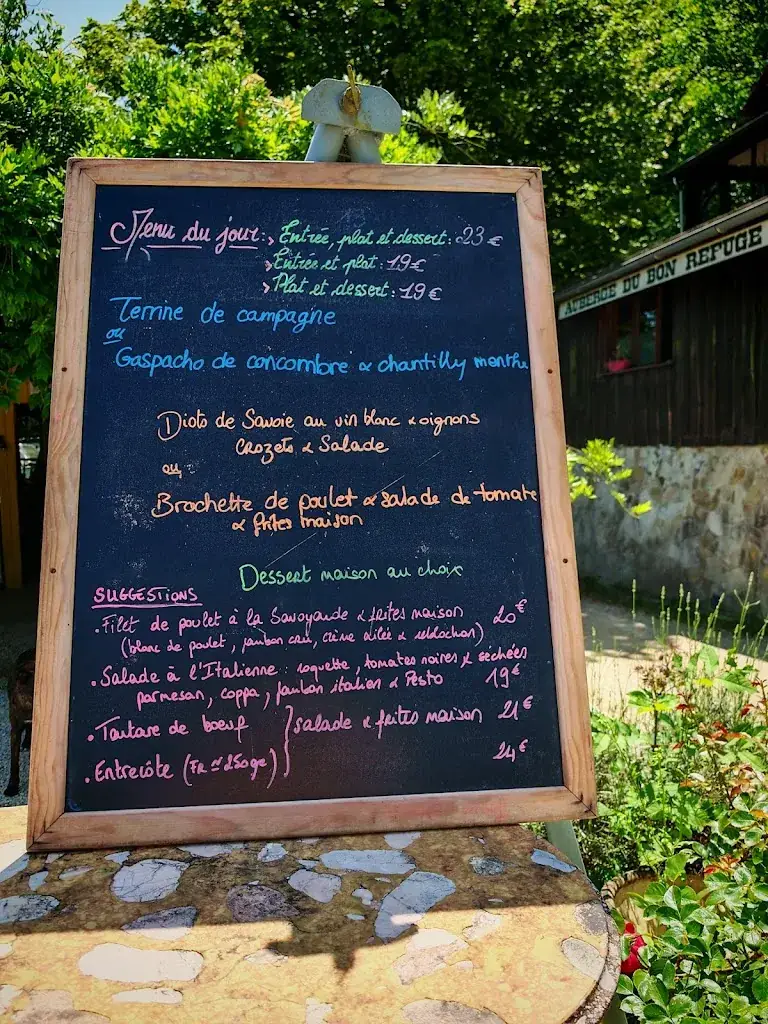 Menu du jour: > Entrée, plat et dessert: 23 €
> Entrée et plat: 19 €
> Plat et dessert: 19 €
Terrine de campagne
ou
Gaspacho de concombre & chantilly menthe
Diots de Savoie au vin blanc & oignons
Crozets & Salade
ou
Brochette de poulet & salade de tomate
& frites maison
Dessert maison au choix
SUGGESTIONS
• Filet de poulet à la Savoyarde & frites maison 20 €
(blanc de poulet, jambon cru, crème & reblochon)
• Salade à l'Italienne: roquette, tomates noires & séchées
parmesan, coppa, jambon italien & Pesto 19 €
• Tartare de boeuf } salade & frites maison 21 €
• Entrecôte (FR ≃ 250gr) 24 €
AUBERGE DU BON REFUGE